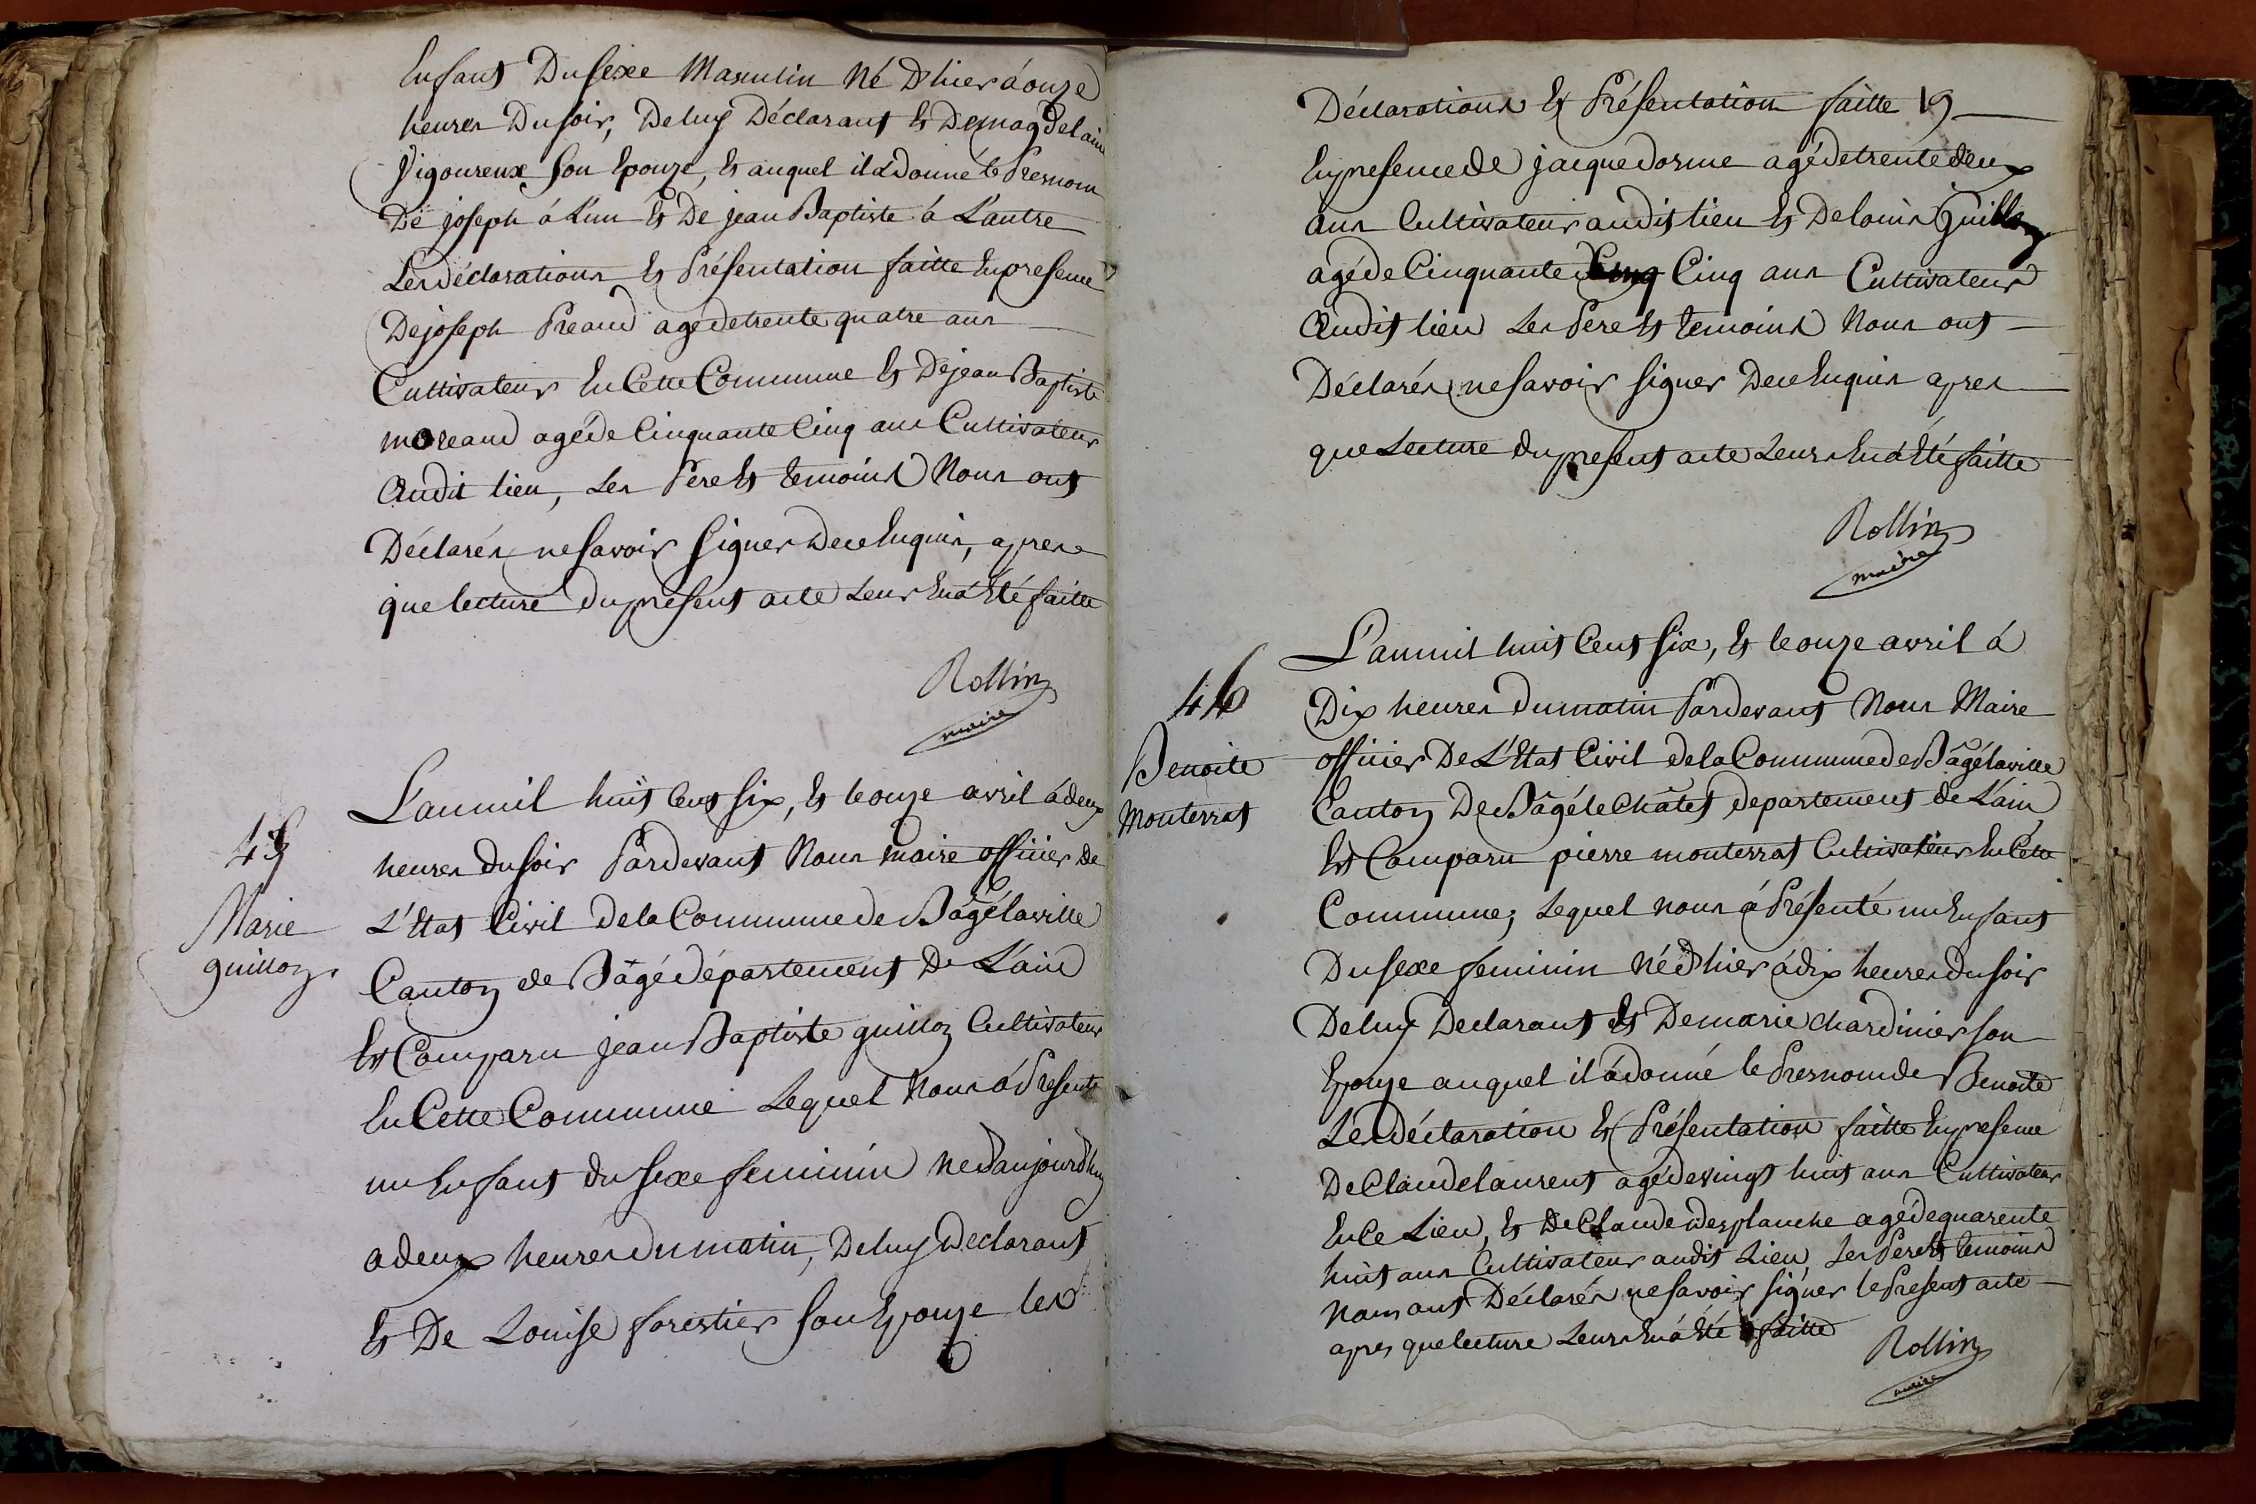 Enfans Du sexe Masculin Né D'hier à onze
heures Du soir, De luy Déclarant Et De magdelaine
Vigoureux son Epouze, Et auquel il a donné le Presnom
De joseph à L'un Et De jean Baptiste à L'autre
Les déclarations Et Présentation faitte En presence
De joseph Preaud agé de trente quatre ans
Cultivateur En Cette Commune Et De jean Baptiste
moreaud agé de Cinquante Cinq ans Cultivateur
Audit lieu, Les Pere Et temoins Nous ont
Déclarés ne savoir signer De ce Enquis, apres
que lecture du présent acte Leur En à Eté faitte
Rollin
maire
45
Marie
guilloz
L'an mil huit Cent six, Et le onze avril à deux
heures du soir Pardevant Nous maire officier de
L'Etat Civil De la Commune de Bâgélaville
Canton de Bâgé département De L'ain
Est Comparu jean Baptiste guilloz Cultivateur
En Cette Commune Lequel Nous à Presenté
un Enfant du sexe feminin né d'aujourd'huy
a deux heures du matin, De luy Declarant
Et De Louise forestier son Epouze les
Déclarations Et Présentation faitte 19
En presence de jacque dorme agé de trente deux
ans Cultivateur audit lieu Et De louis Guilloz
agé de Cinquante Cinq ans Cultivateur
Audit lieu Les Pere Et temoins Nous ont
Déclarés ne savoir signer De ce Enquis apres
que Lecture du present acte Leurs En à Eté faitte
Rollin
maire
46
Benoite
Monterrat
L'an mil huit Cent six, Et le onze avril à
Dix heures du matin Pardevant Nous Maire
officier De L'Etat Civil de la Commune de Bâgélaville
Canton De Bâgé le Châtel departement de L'ain
Est Comparu pierre monterrat Cultivateur En Cette
Commune, Lequel nous à Présenté un Enfant
Du sexe feminin Né d'hier à dix heures du soir
De luy Declarant Et De marie chardinier son
Epouze auquel il à donné le Presnom de Benoite
Les déclaration Et Présentation faitte En presence
De Claude laurent agé de vingt huit ans Cultivateur
En Ce Lieu, Et De Claude desplanche agé de quarente
huit ans Cultivateur audit Lieu, Les Pere Et temoins
Nous ont Déclarés ne savoir signer le Present acte
apres que lecture Leurs En à Eté faitte
Rollin
maire